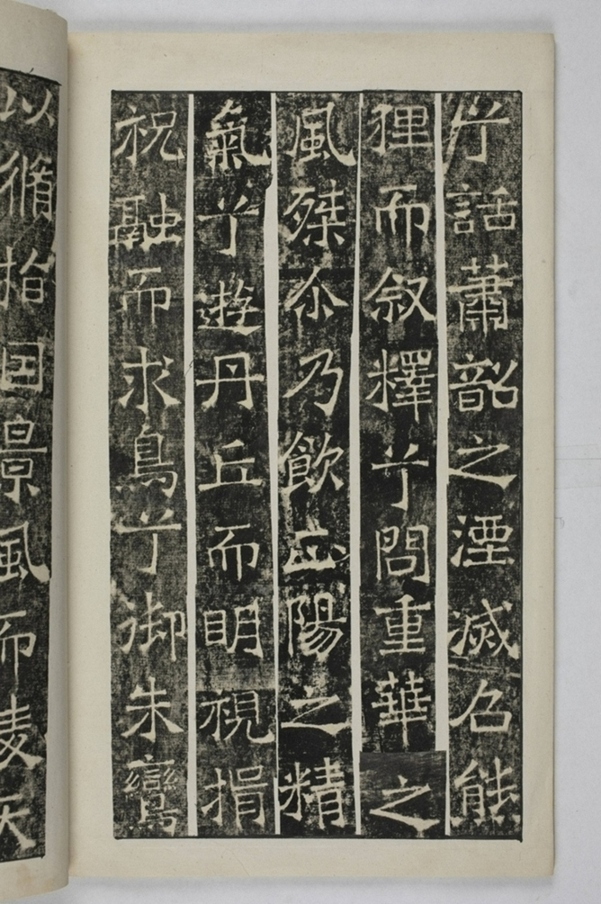 兮話蕭韶之湮滅召熊
狸而叙釋兮問重華之
風桀尒乃飲正陽之精
氣兮遊丹丘而明視捐
祝融而求鳥兮御朱鸞
以脩指因景風而凌天